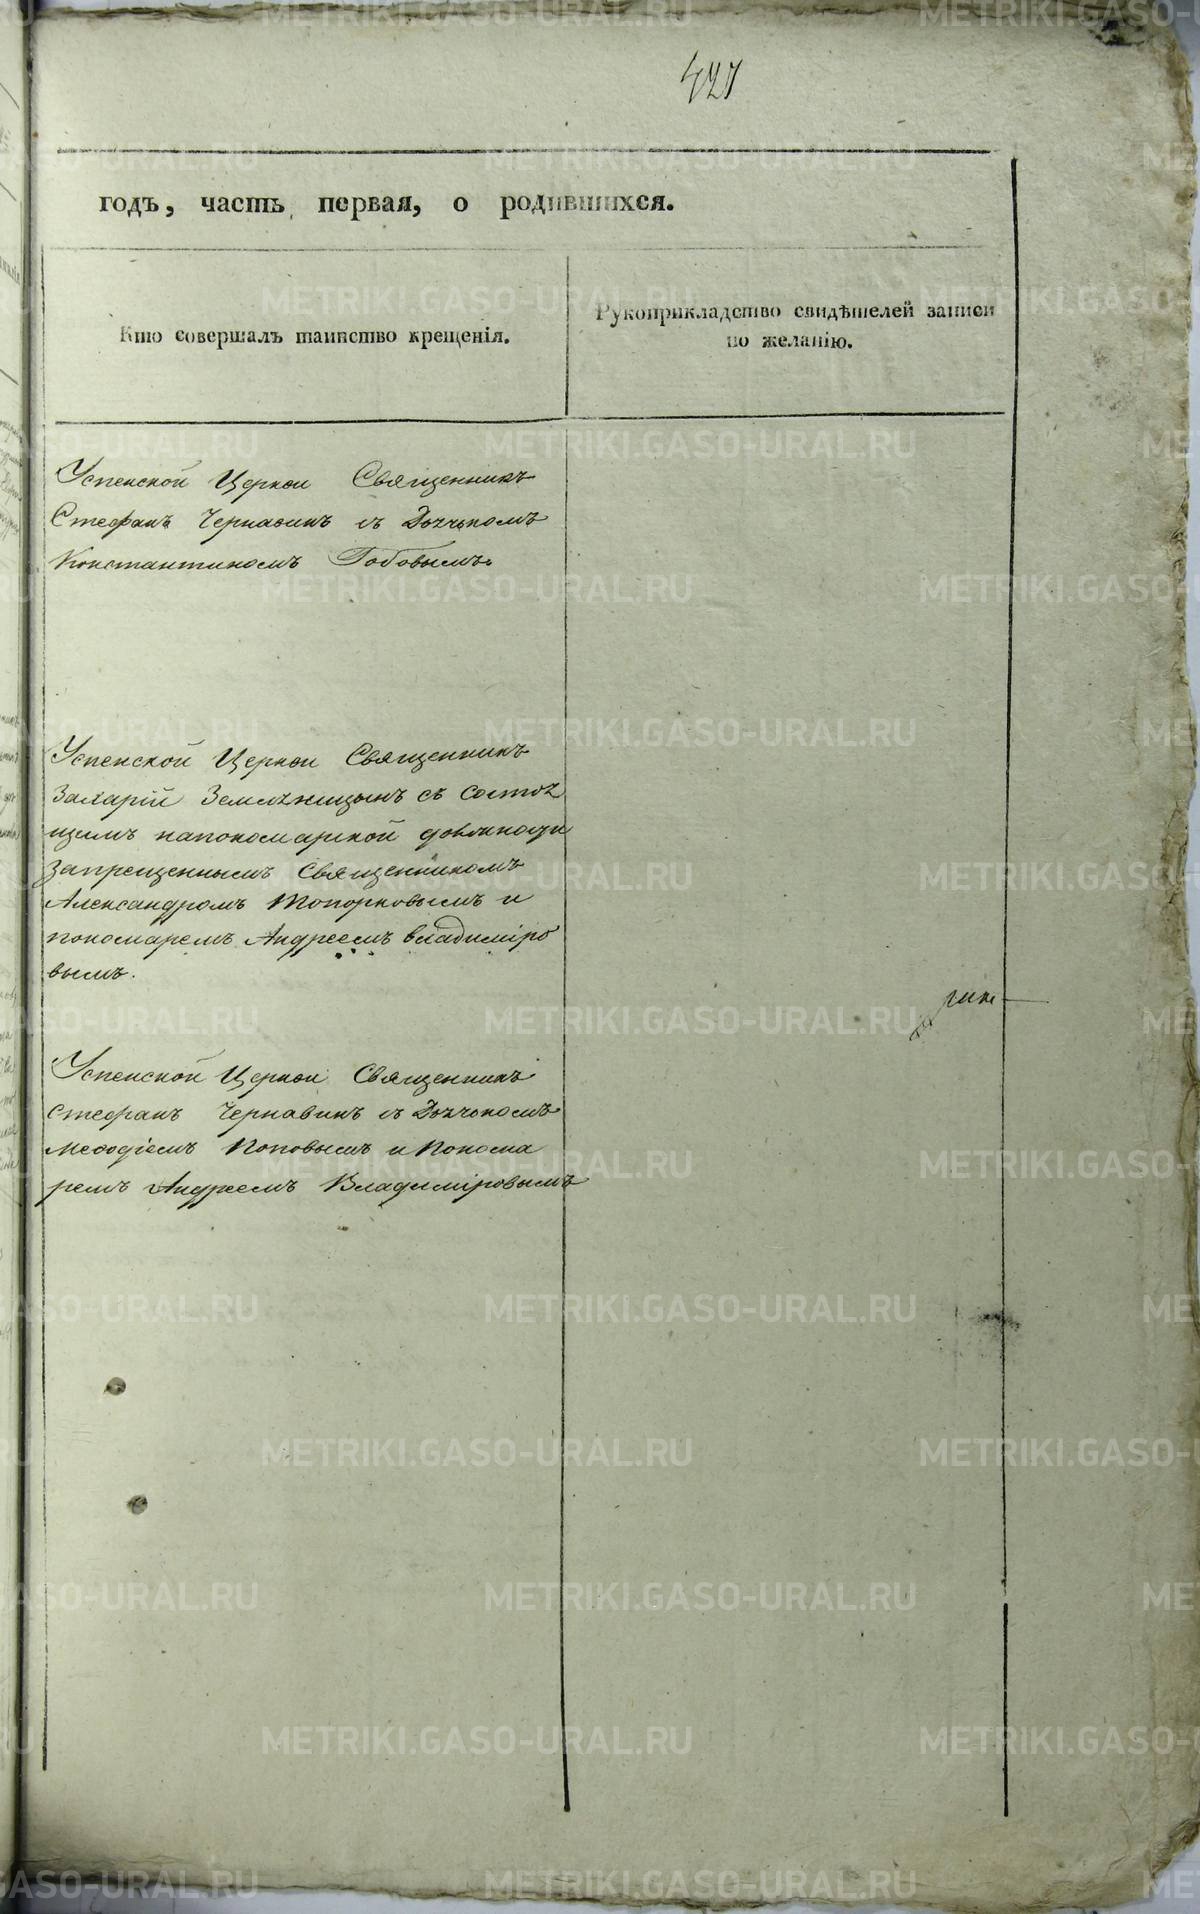 427
годъ, часть первая, о родившихся.
Кто совершалъ таинство крещенія.
Рукоприкладство свидѣтелей записи
по желанію.
Успенской Церкви Священникъ
Стефанъ Чернавинъ съ Дьячькомъ
Константиномъ Гобовымъ.
Успенской Церкви Священникъ
Захарій Землѣницынъ съ состоя
щимъ напономарской должности
запрещеннымъ Священникомъ
Александромъ Топорковымъ и
пономаремъ Андреемъ Владиміро
вымъ.
Успенской Церкви Священникъ
Стефанъ Чернавинъ съ Дьячькомъ
Мефодіемъ Поповымъ и Понома
ремъ Андреемъ Владиміровымъ
METRIKI.GASO-URAL.RU